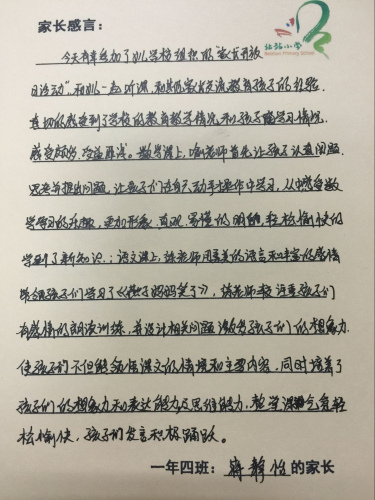 家长感言：
北站小学
今天有幸参加了xx学校组织的“家长开放
日活动”和xx一起听课，和其他家长交流教育孩子的经验。
真切的感受到了学校的教育教学情况和孩子的学习情况。
感受颇多，受益匪浅。数学课上，喻老师首先让孩子认真问题，
思考并提出问题，让孩子们在自己动手操作中学习，从中感受数
学学习的乐趣，更加形象、直观、易懂的明白，轻松愉快的
学到了新知识；语文课上，陈老师用優美的语言和丰富的感情
带领孩子们学习了《棉子妈妈笑了》，陈老师教注重孩子们
有感情的朗读训练，并设计相关问题激发孩子们的想象力，
使孩子们不但能领悟课文的情境和主要内容，同时培养了
孩子们的想象力和表达能力及思维能力，整堂课气氛轻
松愉快，孩子们发言积极踊跃。
一年四班：蒋静怡的家长